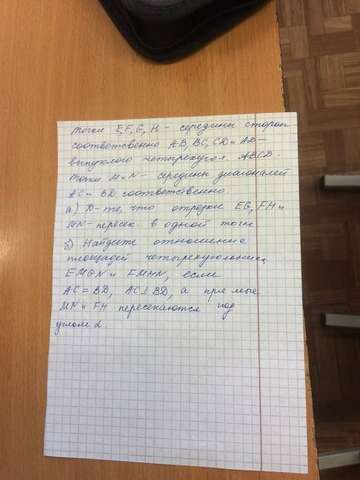 Точки E, F, G, H - середины сторон
соответственно AB, BC, CD и AD -
выпуклого четырехугол. ABCD.
Точки M и N - середины диагоналей
AC и BD соответственно.
а) Д-те, что отрезки EG, FH и
MN - пересек в одной точке
б) Найдите отношение
площадей четырехугольника
EMGN и FMHN, если
AC = BD, AC ⊥ BD, а прямые
MN и FH пересекаются под
углом α.